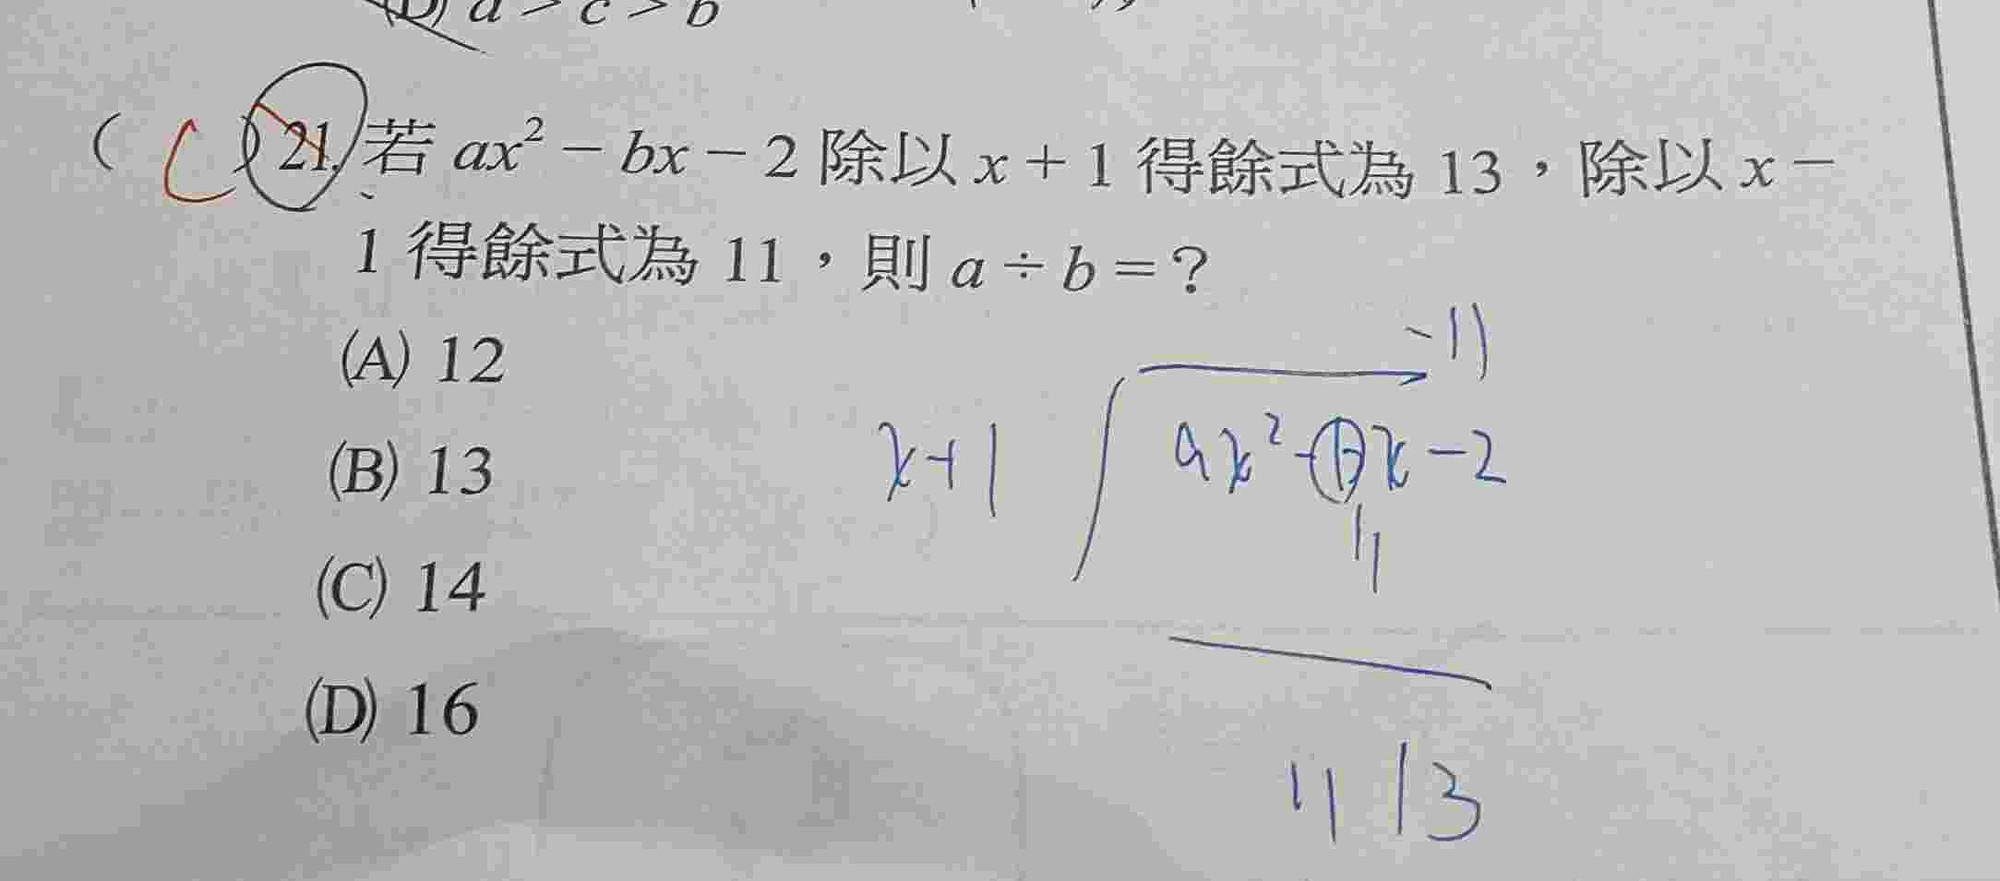 (D) a > c > b
( C ) 21. 若 ax² − bx − 2 除以 x + 1 得餘式為 13，除以 x −
1 得餘式為 11，則 a ÷ b = ?
(A) 12
(B) 13
(C) 14
(D) 16
-11
x+1
ax²-bx-2
11
11 13